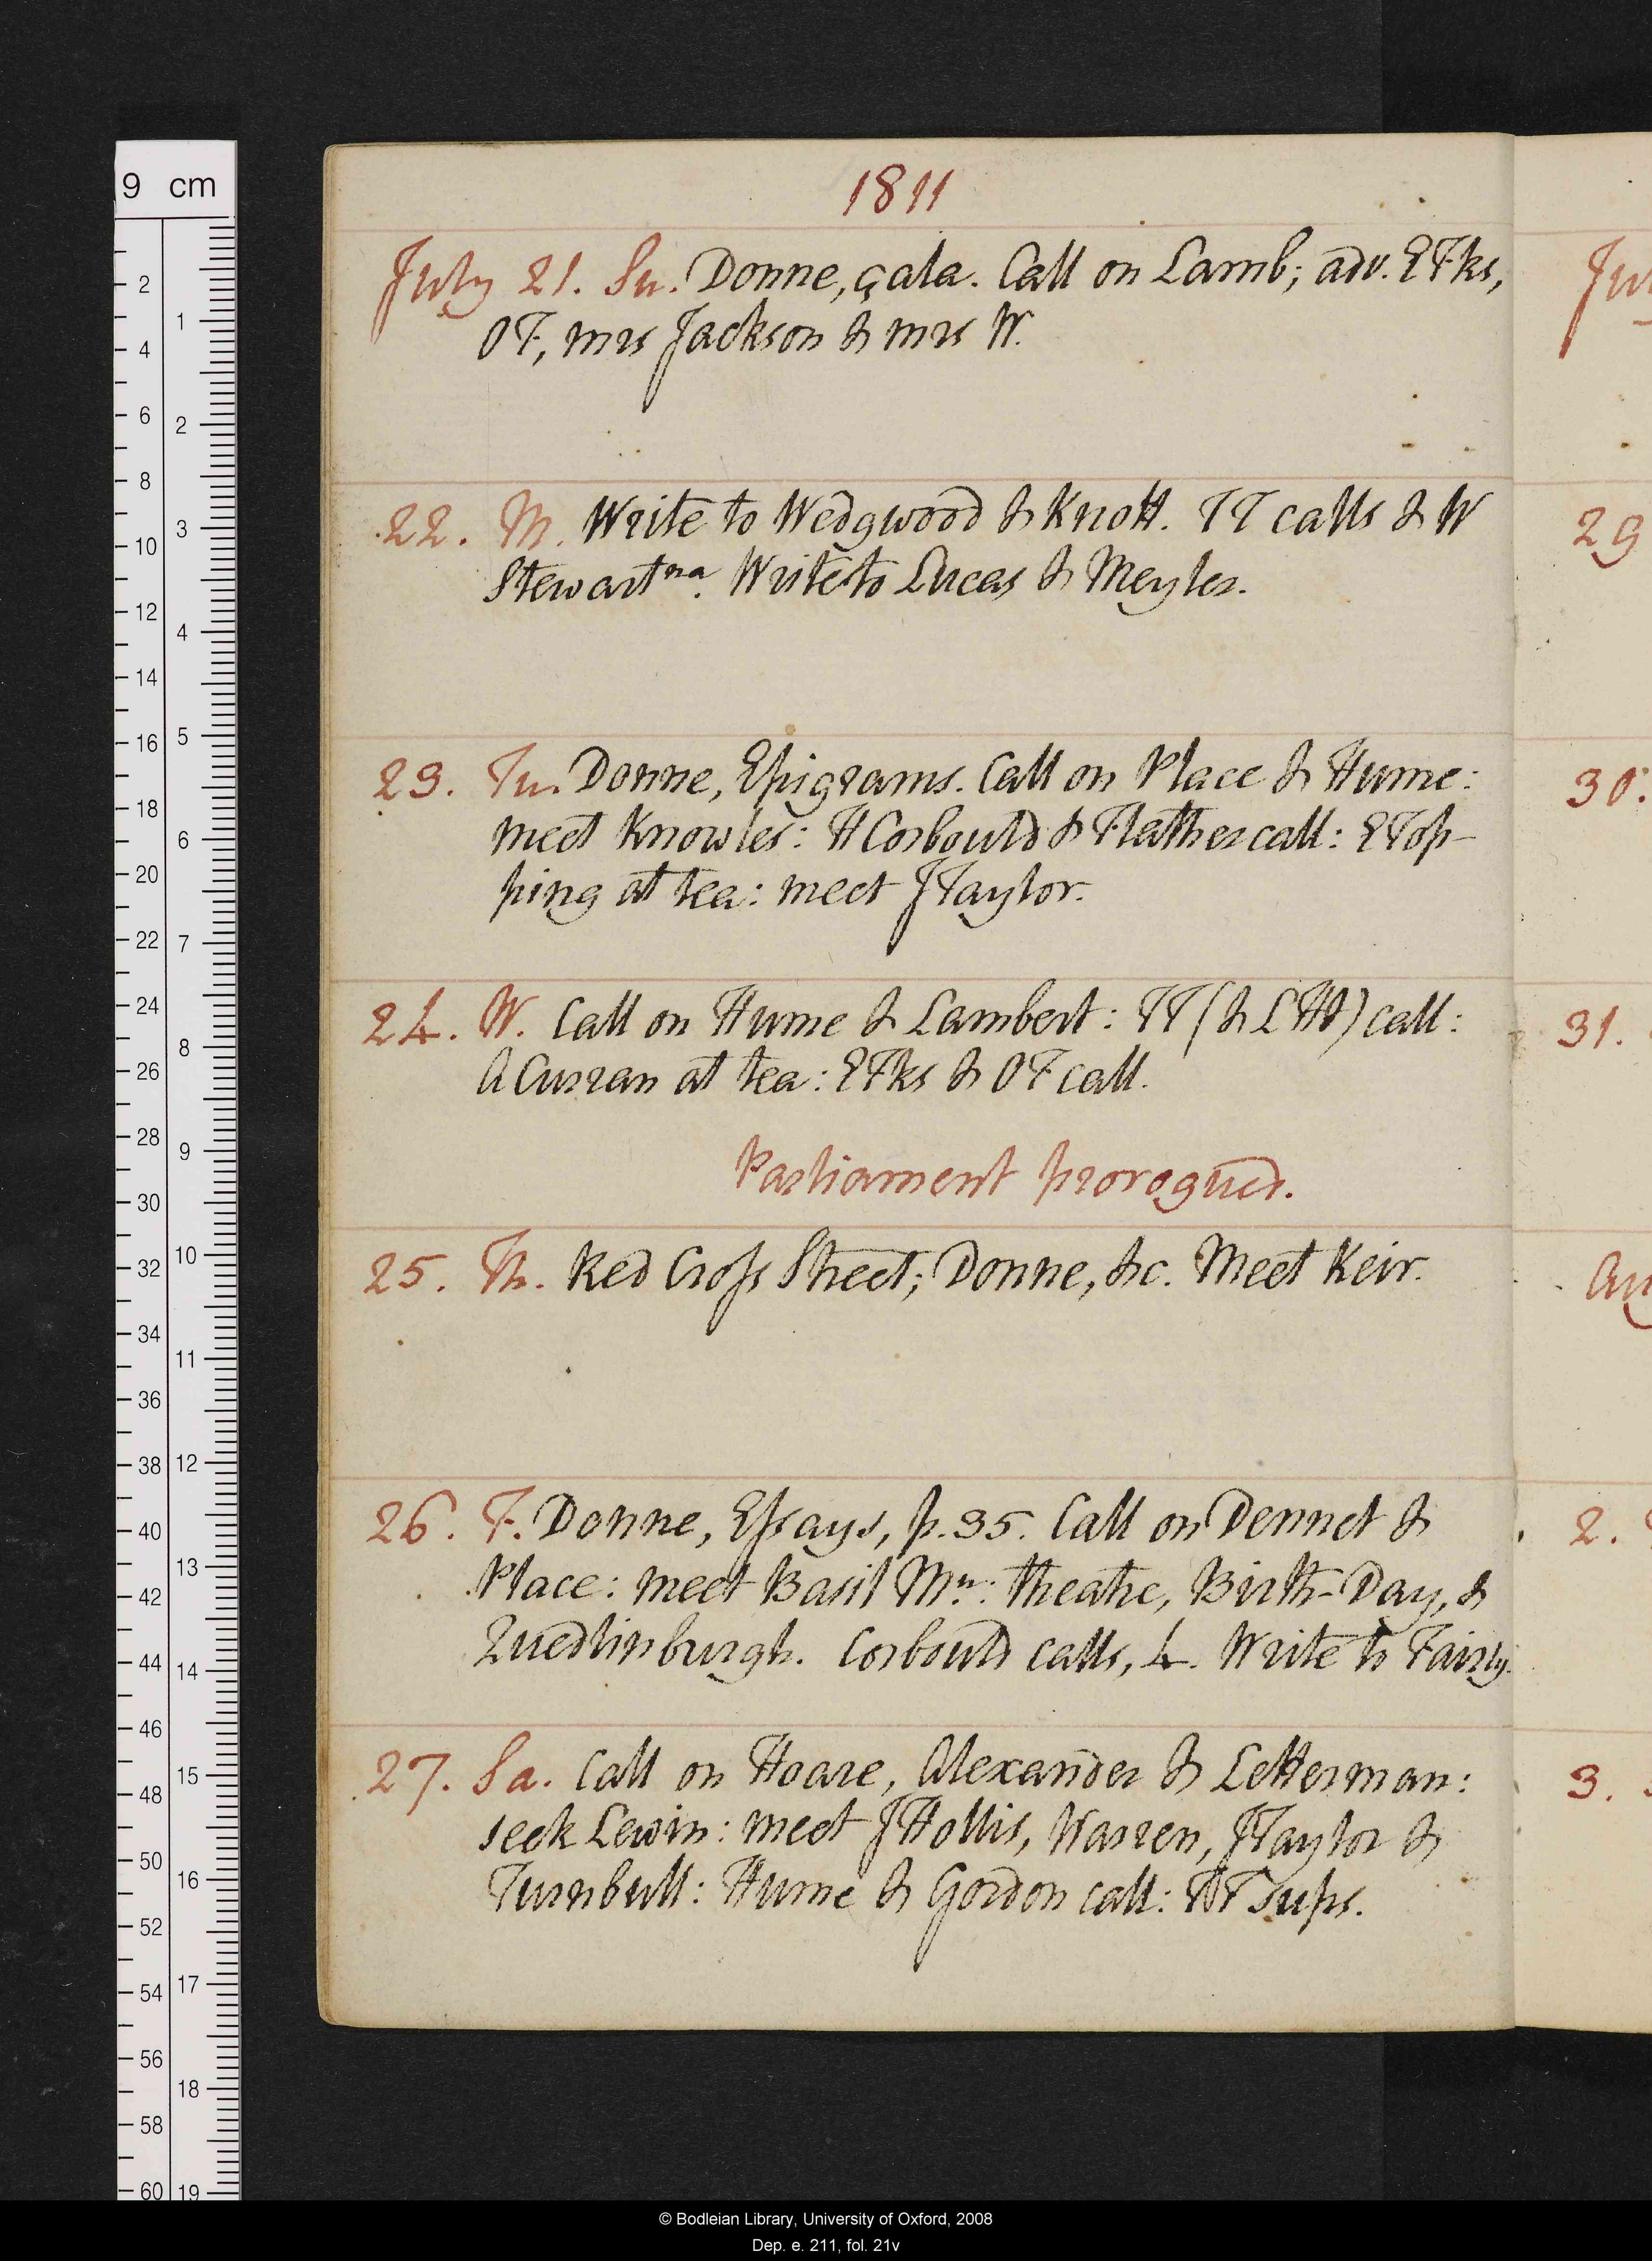 1811
July 21. Su. Donne, çala. Call on Lamb; adv. EFks,
OF, mrs Jackson & mrs W.
22. M. Write to Wedgwood & Knott. TT calls & W
Stewart na. Write to Lucas & Meyler.
23. Tu. Donne, Epigrams. Call on Place & Hume:
meet Knowles: H Corbould & Flather call: E Top-
ping at tea: meet J Taylor.
24. W. Call on Hume & Lambert: TT (& L Ht) call:
A Curran at tea: EFks & OF call.
Parliament prorogued.
25. Th. Red Cross Street; Donne, &c. Meet Keir.
26. F. Donne, Essays, p. 35. Call on Dennet &
Place: meet Basil Mn: theatre, Birth-Day, &
Quedlinburgh. Corbould calls, L. Write to Fairly.
27. Sa. Call on Hoare, Alexander & Letterman:
seek Lewin: meet J Hollis, Warren, J Taylor &
Turnbull: Hume & Gordon call: TT sups.
Jul
29
30.
31.
Au
2.
3.
9 cm
2
4
6
8
10
12
14
16
18
20
22
24
26
28
30
32
34
36
38
40
42
44
46
48
50
52
54
56
58
60
1
2
3
4
5
6
7
8
9
10
11
12
13
14
15
16
17
18
19
© Bodleian Library, University of Oxford, 2008
Dep. e. 211, fol. 21v